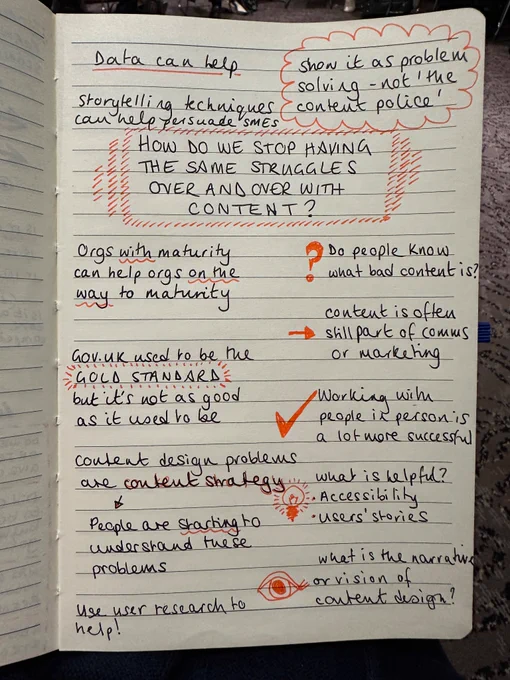 Data can help
show it as problem
solving - not 'the
content police'
storytelling techniques
can help persuade SMEs
HOW DO WE STOP HAVING
THE SAME STRUGGLES
OVER AND OVER WITH
CONTENT?
Orgs with maturity
can help orgs on the
way to maturity
? Do people know
what bad content is?
content is often
→ still part of comms
or marketing
Gov.uk used to be the
GOLD STANDARD
but it's not as good
as it used to be
✓ Working with
people in person is
a lot more successful
content design problems
are content strategy
People are starting to
understand these
problems
what is helpful?
· Accessibility
· users' stories
use user research to
help!
what is the narrative
or vision of
content design?